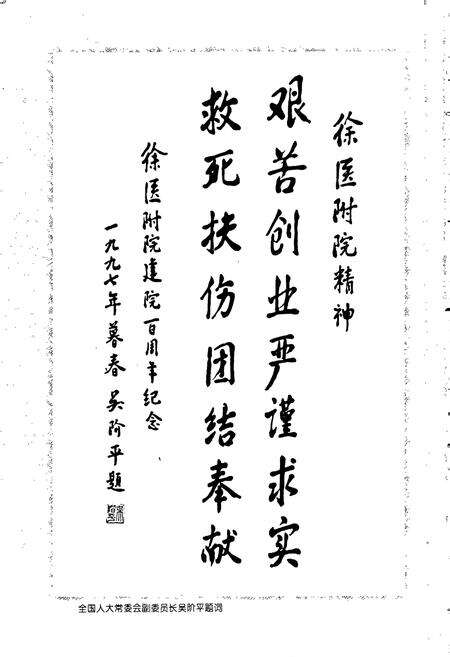 徐医附院精神
艰苦创业严谨求实
救死扶伤团结奉献
徐医附院建院百周年纪念
一九九七年暮春 吴阶平题
全国人大常委会副委员长吴阶平题词